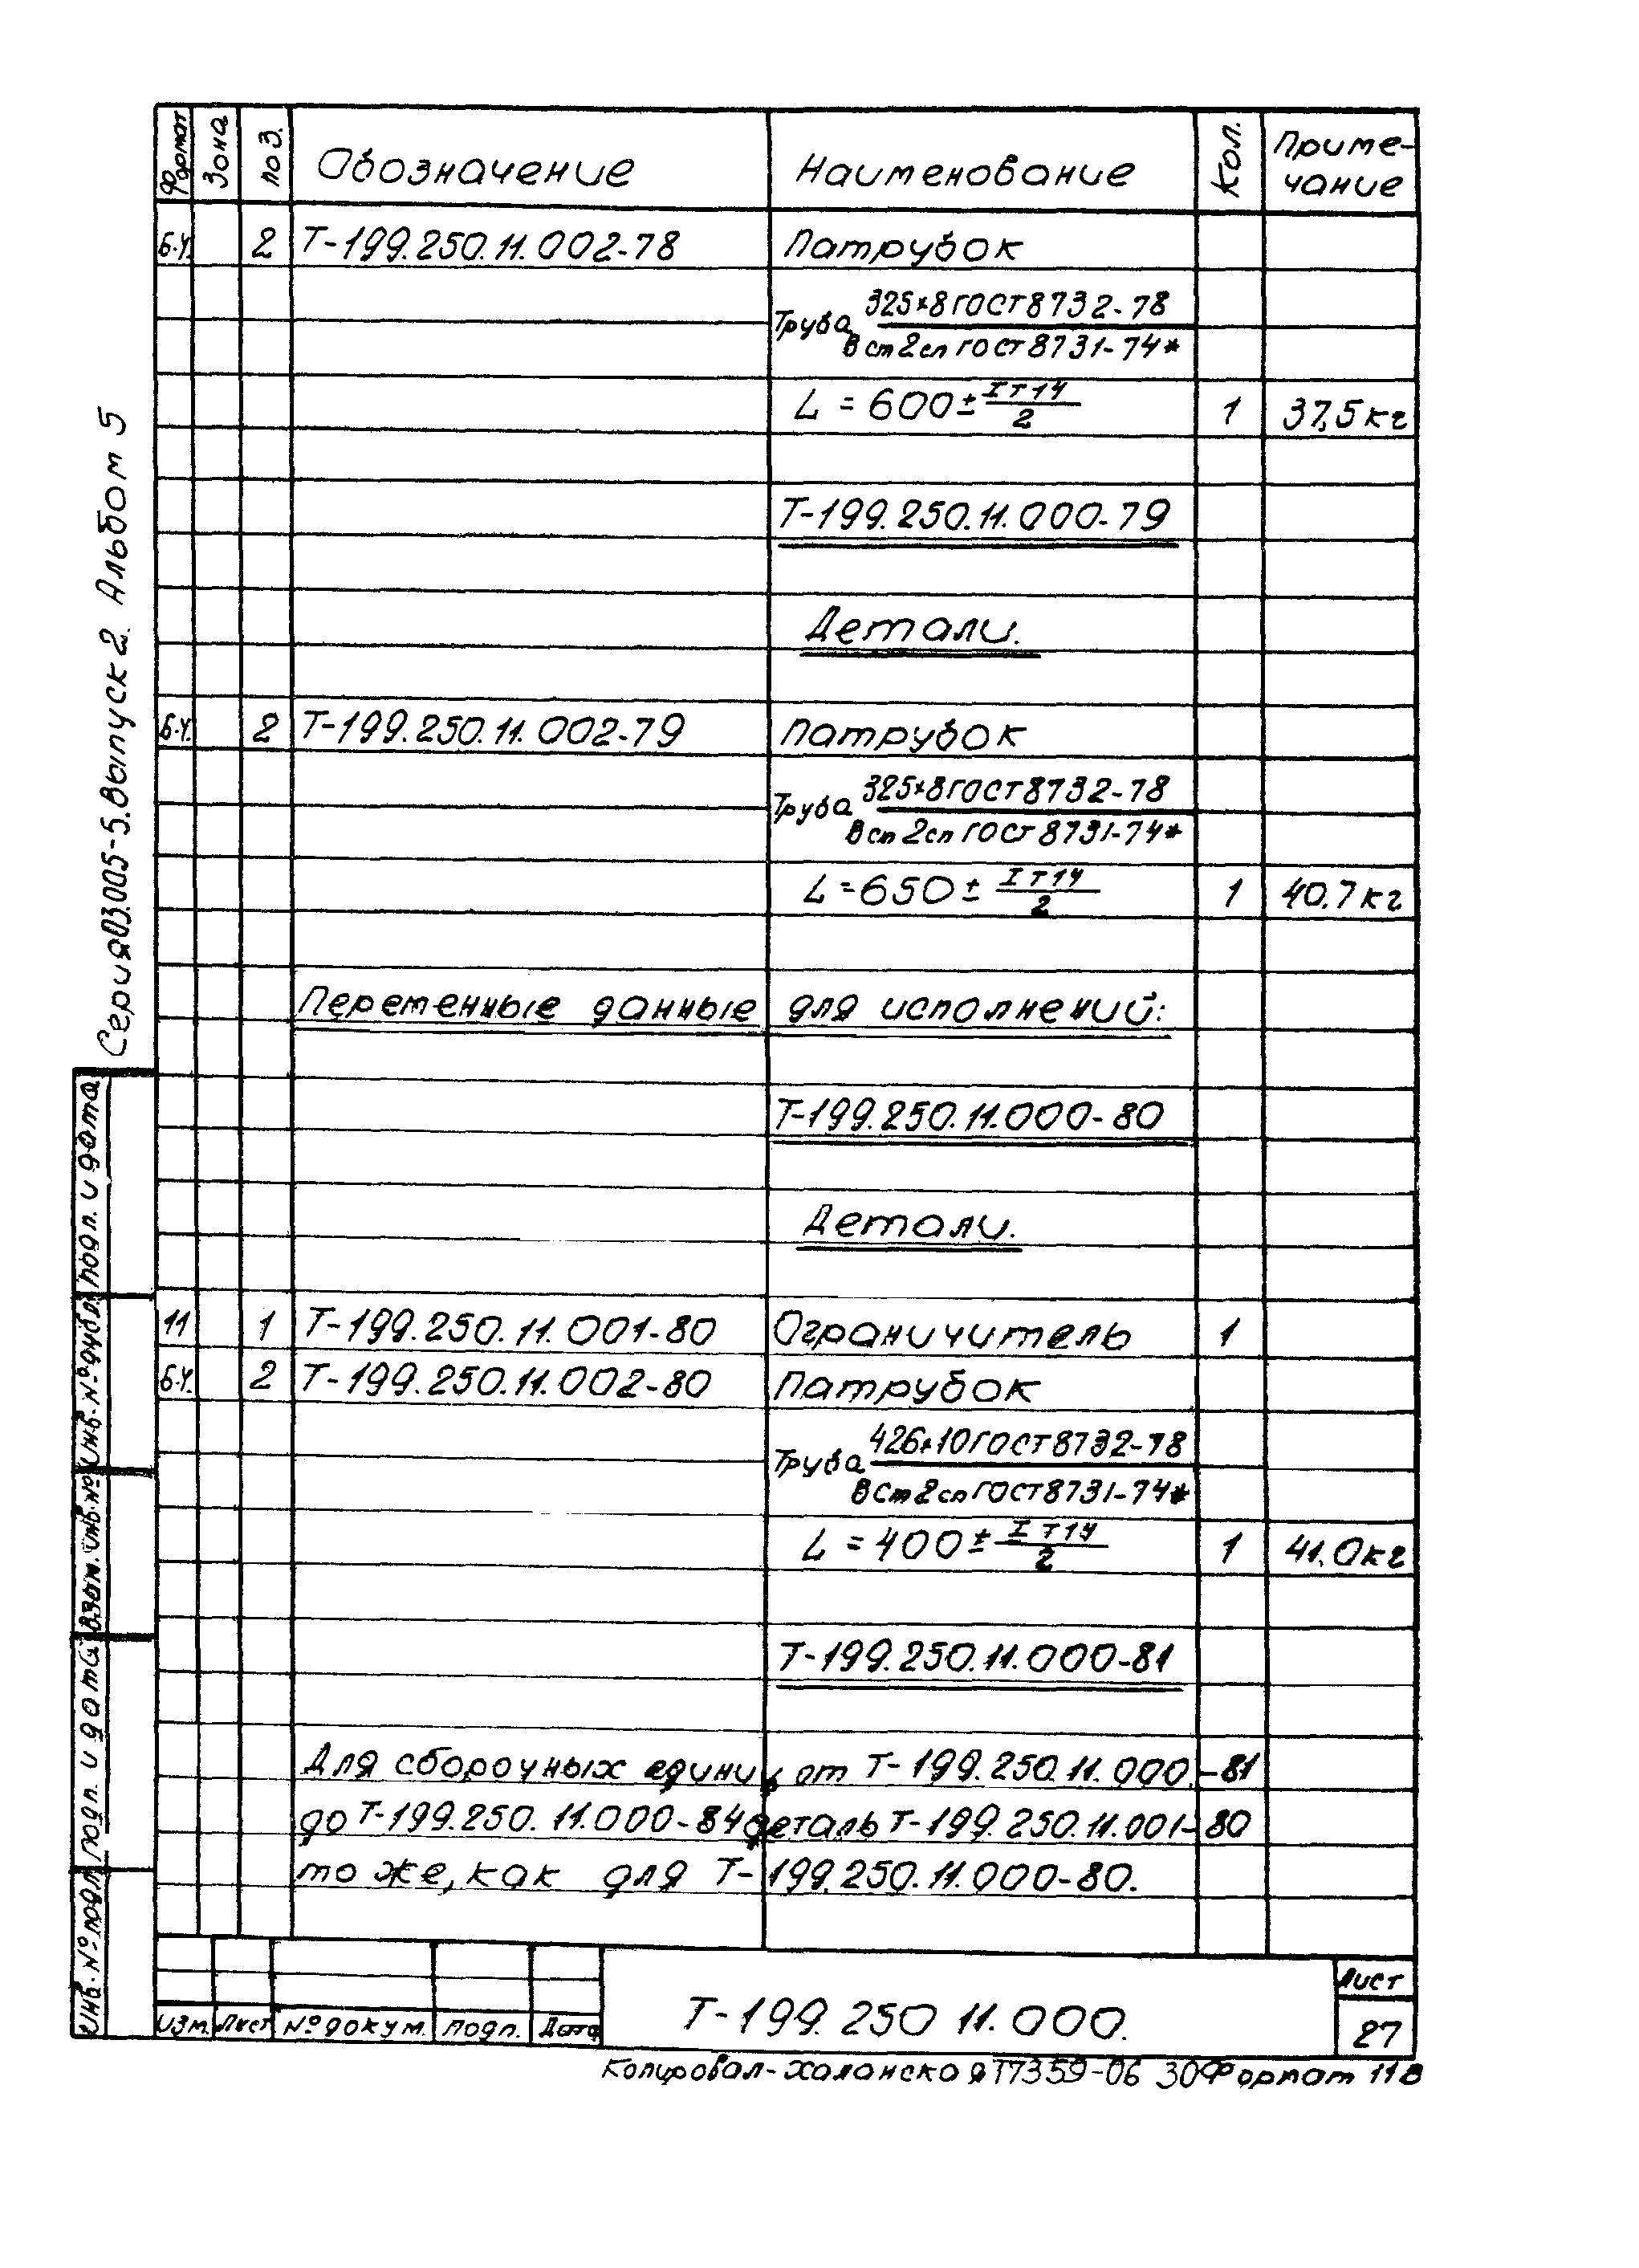 Формат Зона Поз. Обозначение Наименование Кол. Приме-
чание
Б.Ч. 2 Т-199.250.11.002-78 Патрубок
Труба 325×8 ГОСТ 8732-78
В ст 2 сп ГОСТ 8731-74*
L = 600 ± IT14/2 1 37,5 кг
Т-199.250.11.000-79
Детали.
Б.Ч. 2 Т-199.250.11.002-79 Патрубок
Труба 325×8 ГОСТ 8732-78
В ст 2сп ГОСТ 8731-74*
L = 650 ± IT14/2 1 40.7 кг
Переменные данные для исполнений:
Т-199.250.11.000-80
Детали.
11 1 Т-199.250.11.001-80 Ограничитель 1
Б.Ч. 2 Т-199.250.11.002-80 Патрубок
Труба 426×10 ГОСТ 8732-78
В Ст 2 сп ГОСТ 8731-74*
L = 400 ± IT14/2 1 41.0 кг
Т-199.250.11.000-81
Для сборочных единиц от Т-199.250.11.000.-81
до Т-199.250.11.000-84 деталь Т-199.250.11.001-80
то же, как для Т-199.250.11.000-80.
Серия 03.005-5. Выпуск 2. Альбом 5
Подп. и дата
Инв. № дубл.
Взам. инв. №
Подп. и дата
Инв. № подл.
Изм. Лист № докум. Подп. Дата
Т-199.250 11.000.
Лист
27
Копировал-Халанская Т7359-06 30 Формат 11В